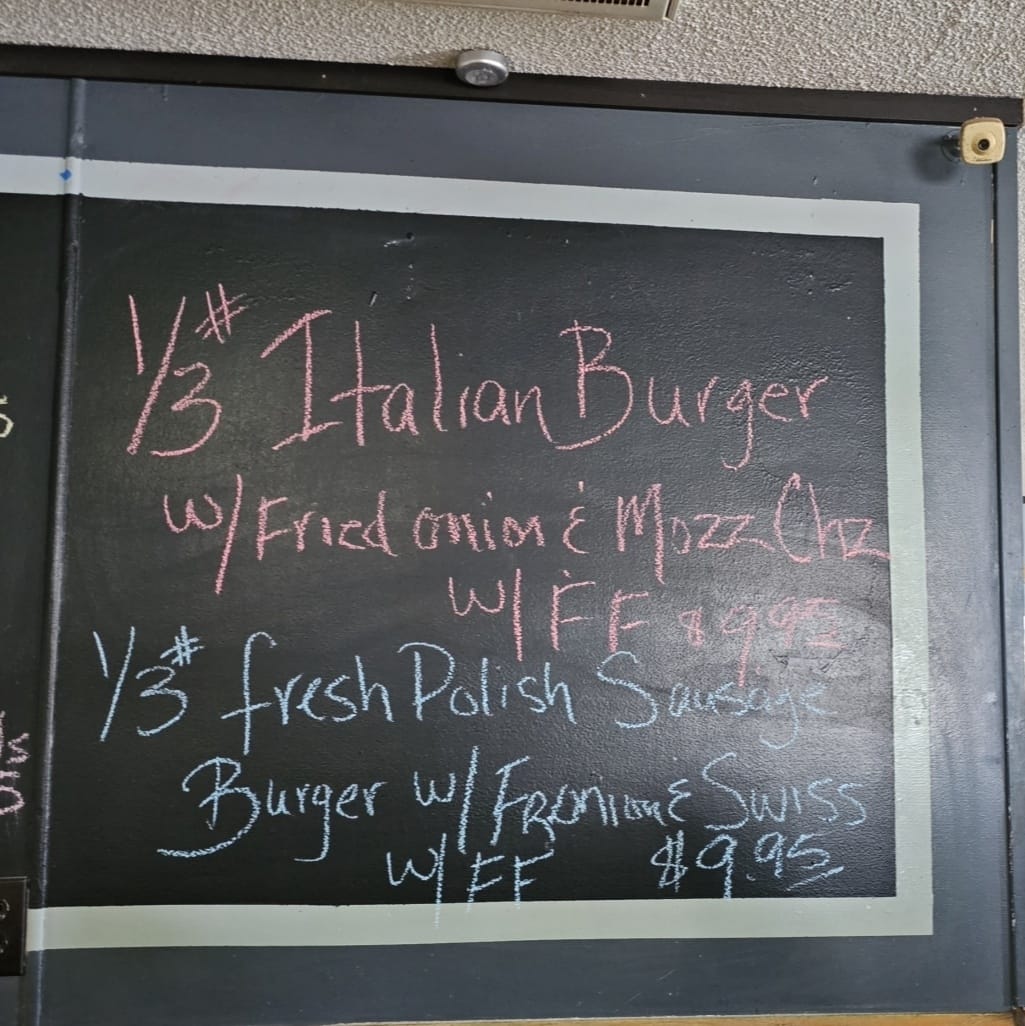 1/3# Italian Burger
w/ Fried onion & Mozz Chz
w/ FF $9.95
1/3# fresh Polish Sausage
Burger w/ FR onion & Swiss
w/ FF $9.95